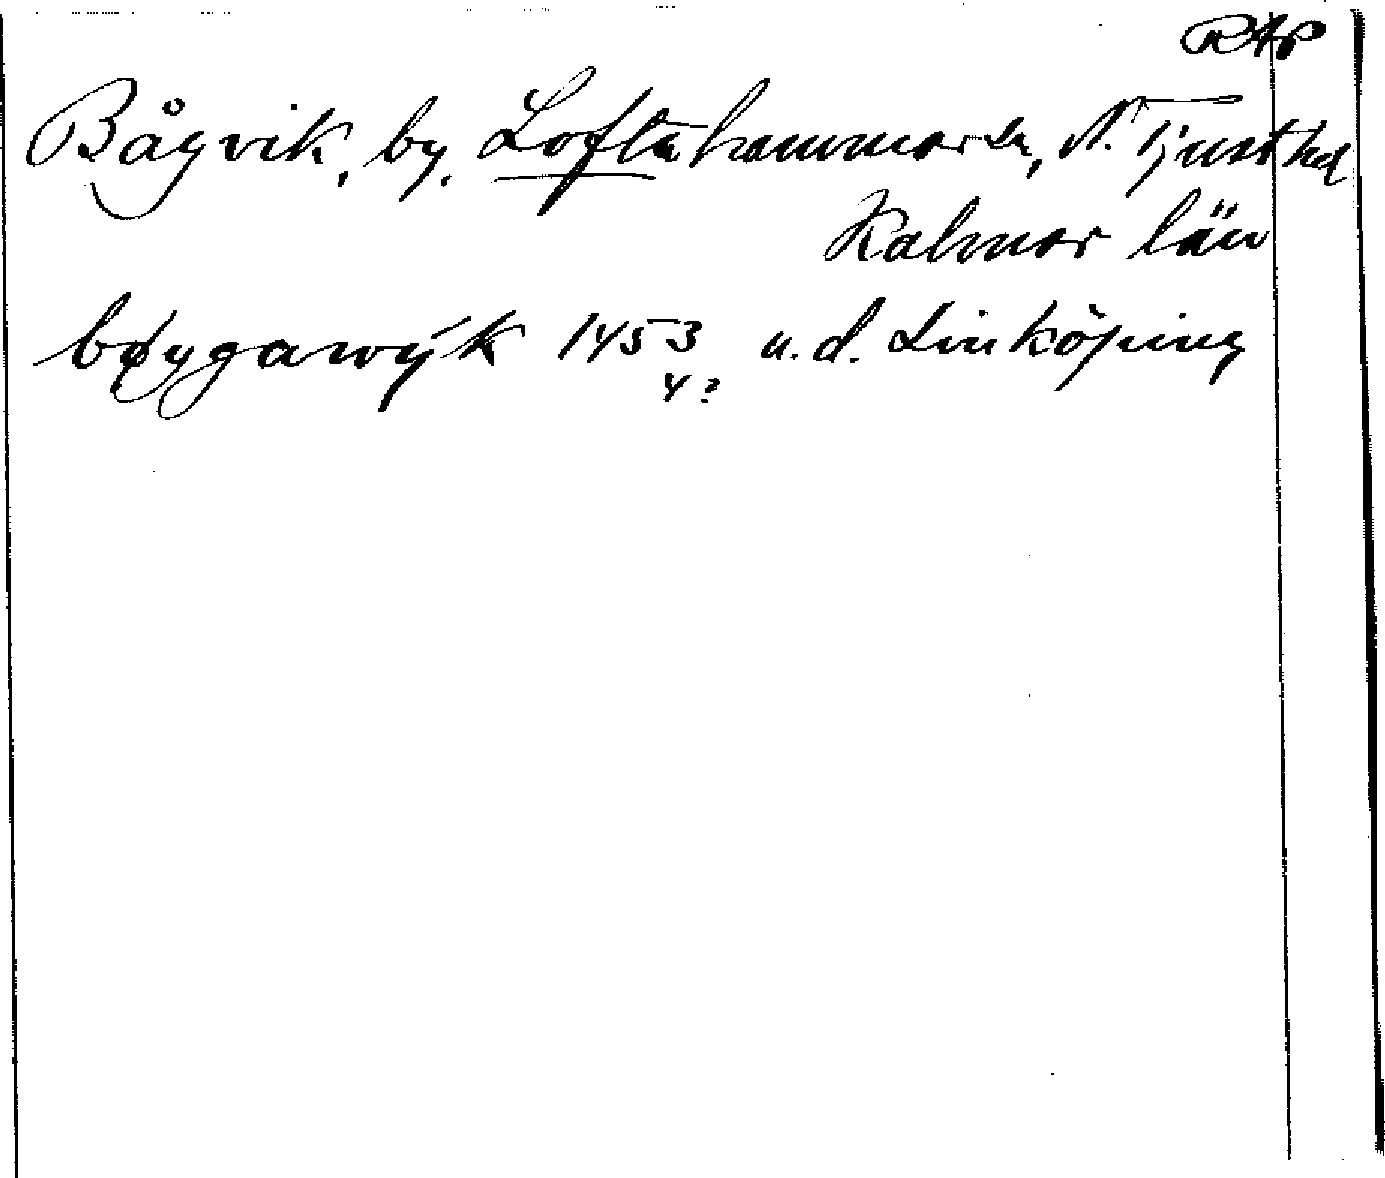 RAP
Bågvik, by, Loftahammar sn, N. Tjust hd
Kalmar län
bøygawyk 1453 u.d. Linköping
4?